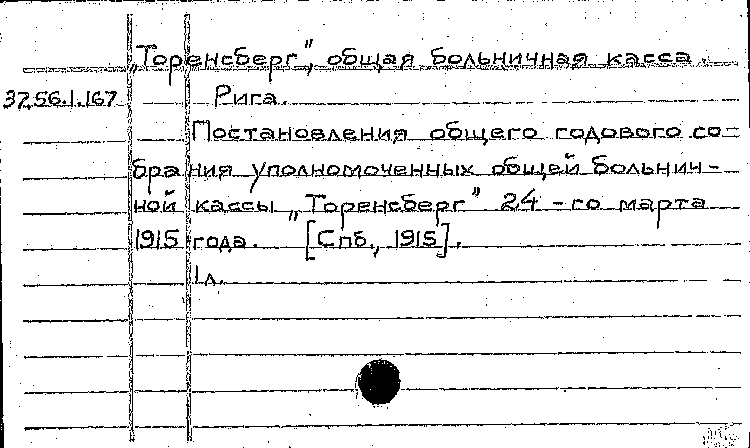 „Торенсберг", общая больничная касса.
37.56.1.167 Рига.
Постановления общего годового со-
брания уполномоченных общей больнич-
ной кассы „Торенсберг" 24-го марта
1915 года. [Спб., 1915].
1 л.